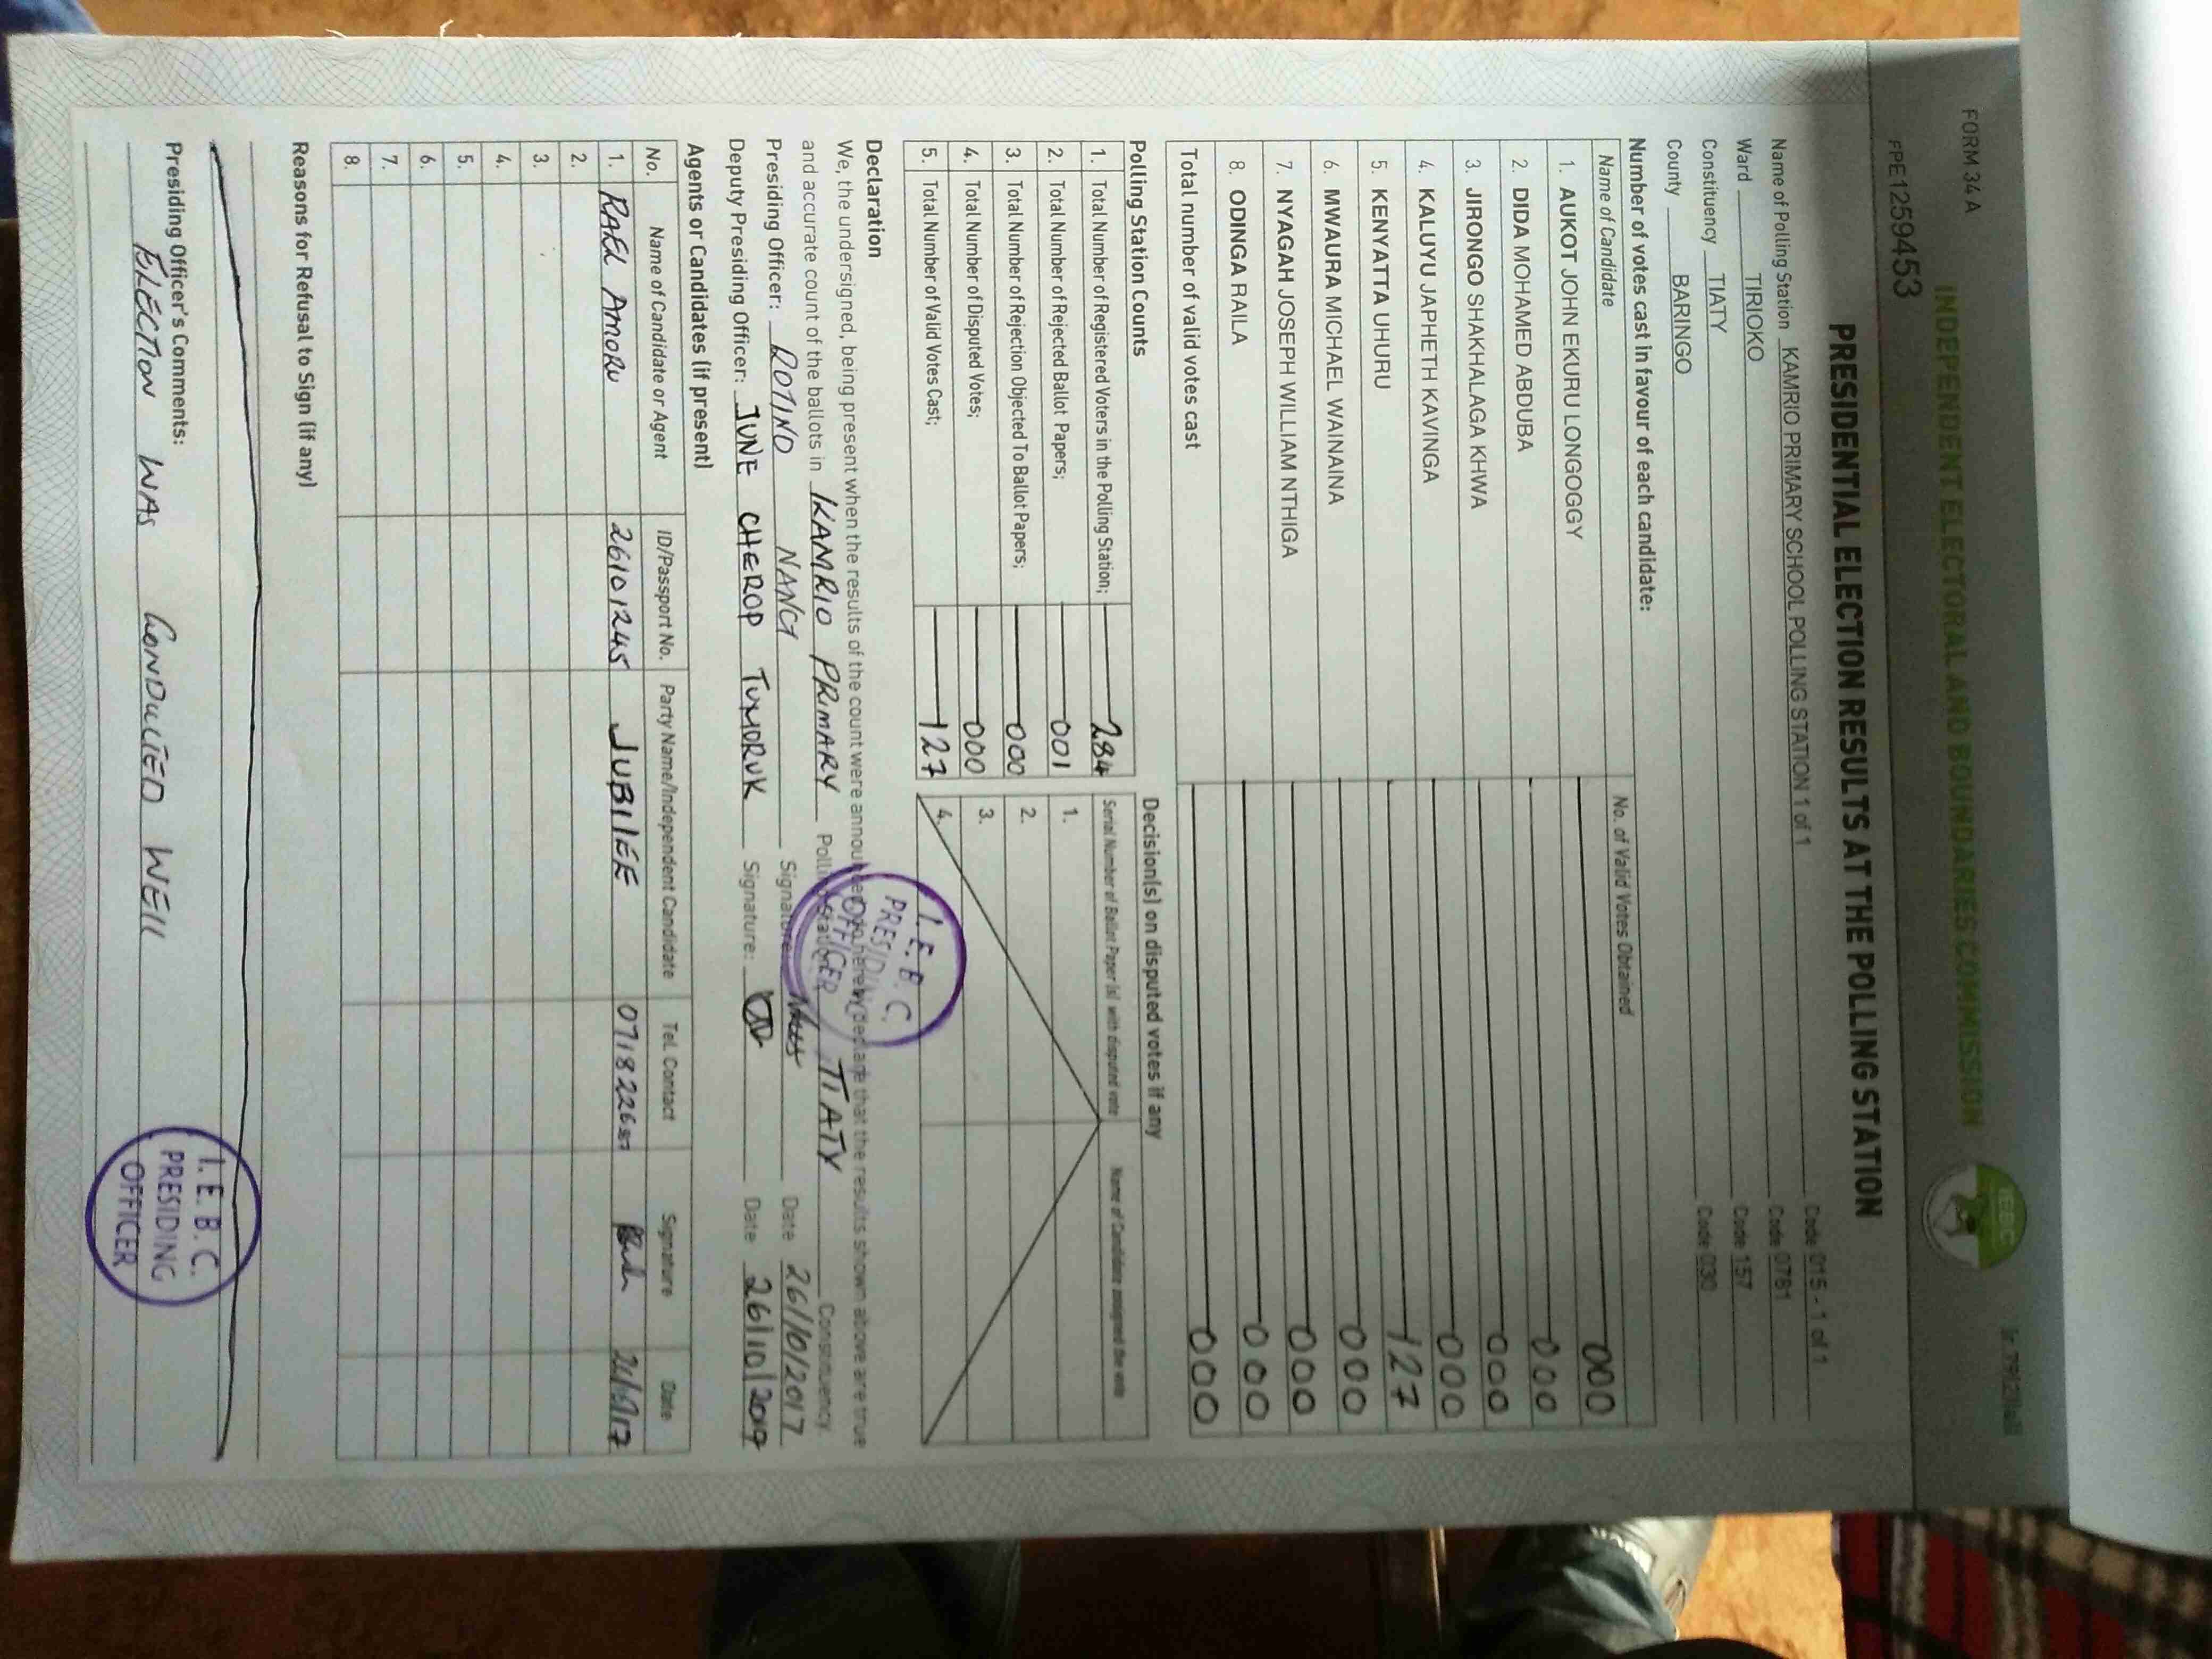 FORM 34 A
INDEPENDENT ELECTORAL AND BOUNDARIES COMMISSION
IEBC
FPE1259453
PRESIDENTIAL ELECTION RESULTS AT THE POLLING STATION
Name of Polling Station KAMRIO PRIMARY SCHOOL POLLING STATION 1 of 1 Code 015 - 1 of 1
Ward TIRIOKO Code 0781
Constituency TIATY Code 157
County BARINGO Code 030
Number of votes cast in favour of each candidate:
Name of Candidate No. of Valid Votes Obtained
1. AUKOT JOHN EKURU LONGOGGY 000
2. DIDA MOHAMED ABDUBA 000
3. JIRONGO SHAKHALAGA KHWA 000
4. KALUYU JAPHETH KAVINGA 000
5. KENYATTA UHURU 127
6. MWAURA MICHAEL WAINAINA 000
7. NYAGAH JOSEPH WILLIAM NTHIGA 000
8. ODINGA RAILA 000
Total number of valid votes cast 000
Polling Station Counts
1. Total Number of Registered Voters in the Polling Station; 284
2. Total Number of Rejected Ballot Papers; 001
3. Total Number of Rejection Objected To Ballot Papers; 000
4. Total Number of Disputed Votes; 000
5. Total Number of Valid Votes Cast; 127
Decision(s) on disputed votes if any
Serial Number of Ballot Paper (s) with disputed vote Name of Candidate assigned the vote
1.
2.
3.
4.
I. E. B. C.
PRESIDING
OFFICER
Declaration
We, the undersigned, being present when the results of the count were announced do hereby declare that the results shown above are true
and accurate count of the ballots in KAMRIO PRIMARY Polling Station TIATY Constituency
Presiding Officer: ROTINO NANCY Signature: Date 26/10/2017
Deputy Presiding Officer: JUNE CHEROP TUMORUK Signature: Date 26/10/2017
Agents or Candidates (if present)
No. Name of Candidate or Agent ID/Passport No. Party Name/Independent Candidate Tel. Contact Signature Date
1. RAEL AMORU 26101245 JUBILEE
2.
3.
4.
5.
6.
7.
8.
Reasons for Refusal to Sign (if any)
Presiding Officer's Comments:
ELECTION WAS CONDUCTED WELL
I. E. B. C.
PRESIDING
OFFICER